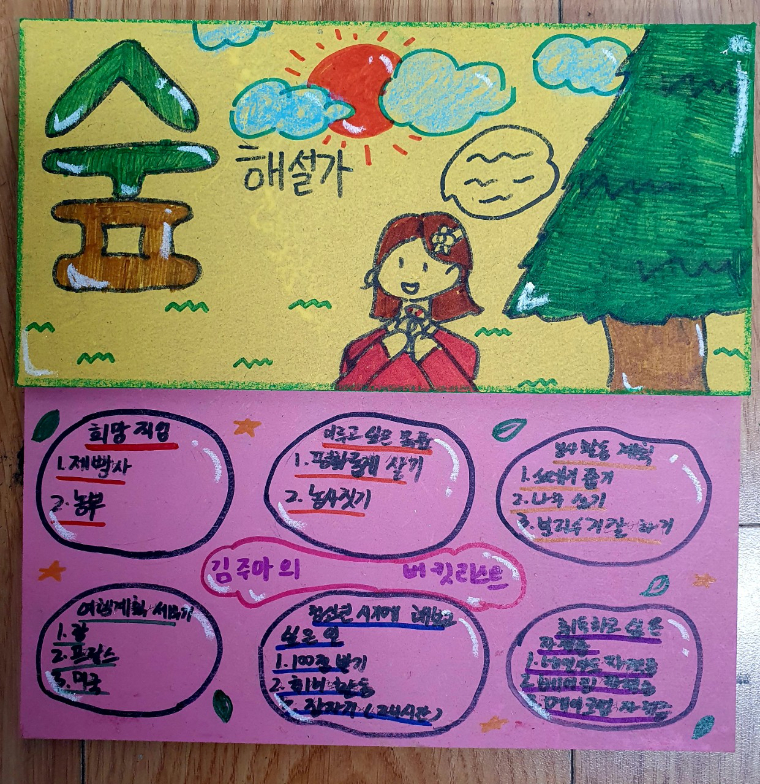 숲
해설가
희망 직업
1. 제빵사
2. 농부
이루고 싶은 목표
1. 평화롭게 살기
2. 농사짓기
봉사활동 계획
1. 쓰레기 줍기
2. 나무 심기
3. 분리수거 잘 하기
김주마의 버킷리스트
여행계획 세우기
1. 괌
2. 프랑스
3. 미국
청소년 시기에 해보고
싶은 일
1. 100점 받기
2. 회비 활동
(24시간)
취득하고 싶은
자격증
1. 자격증
2. 자격증
자격증